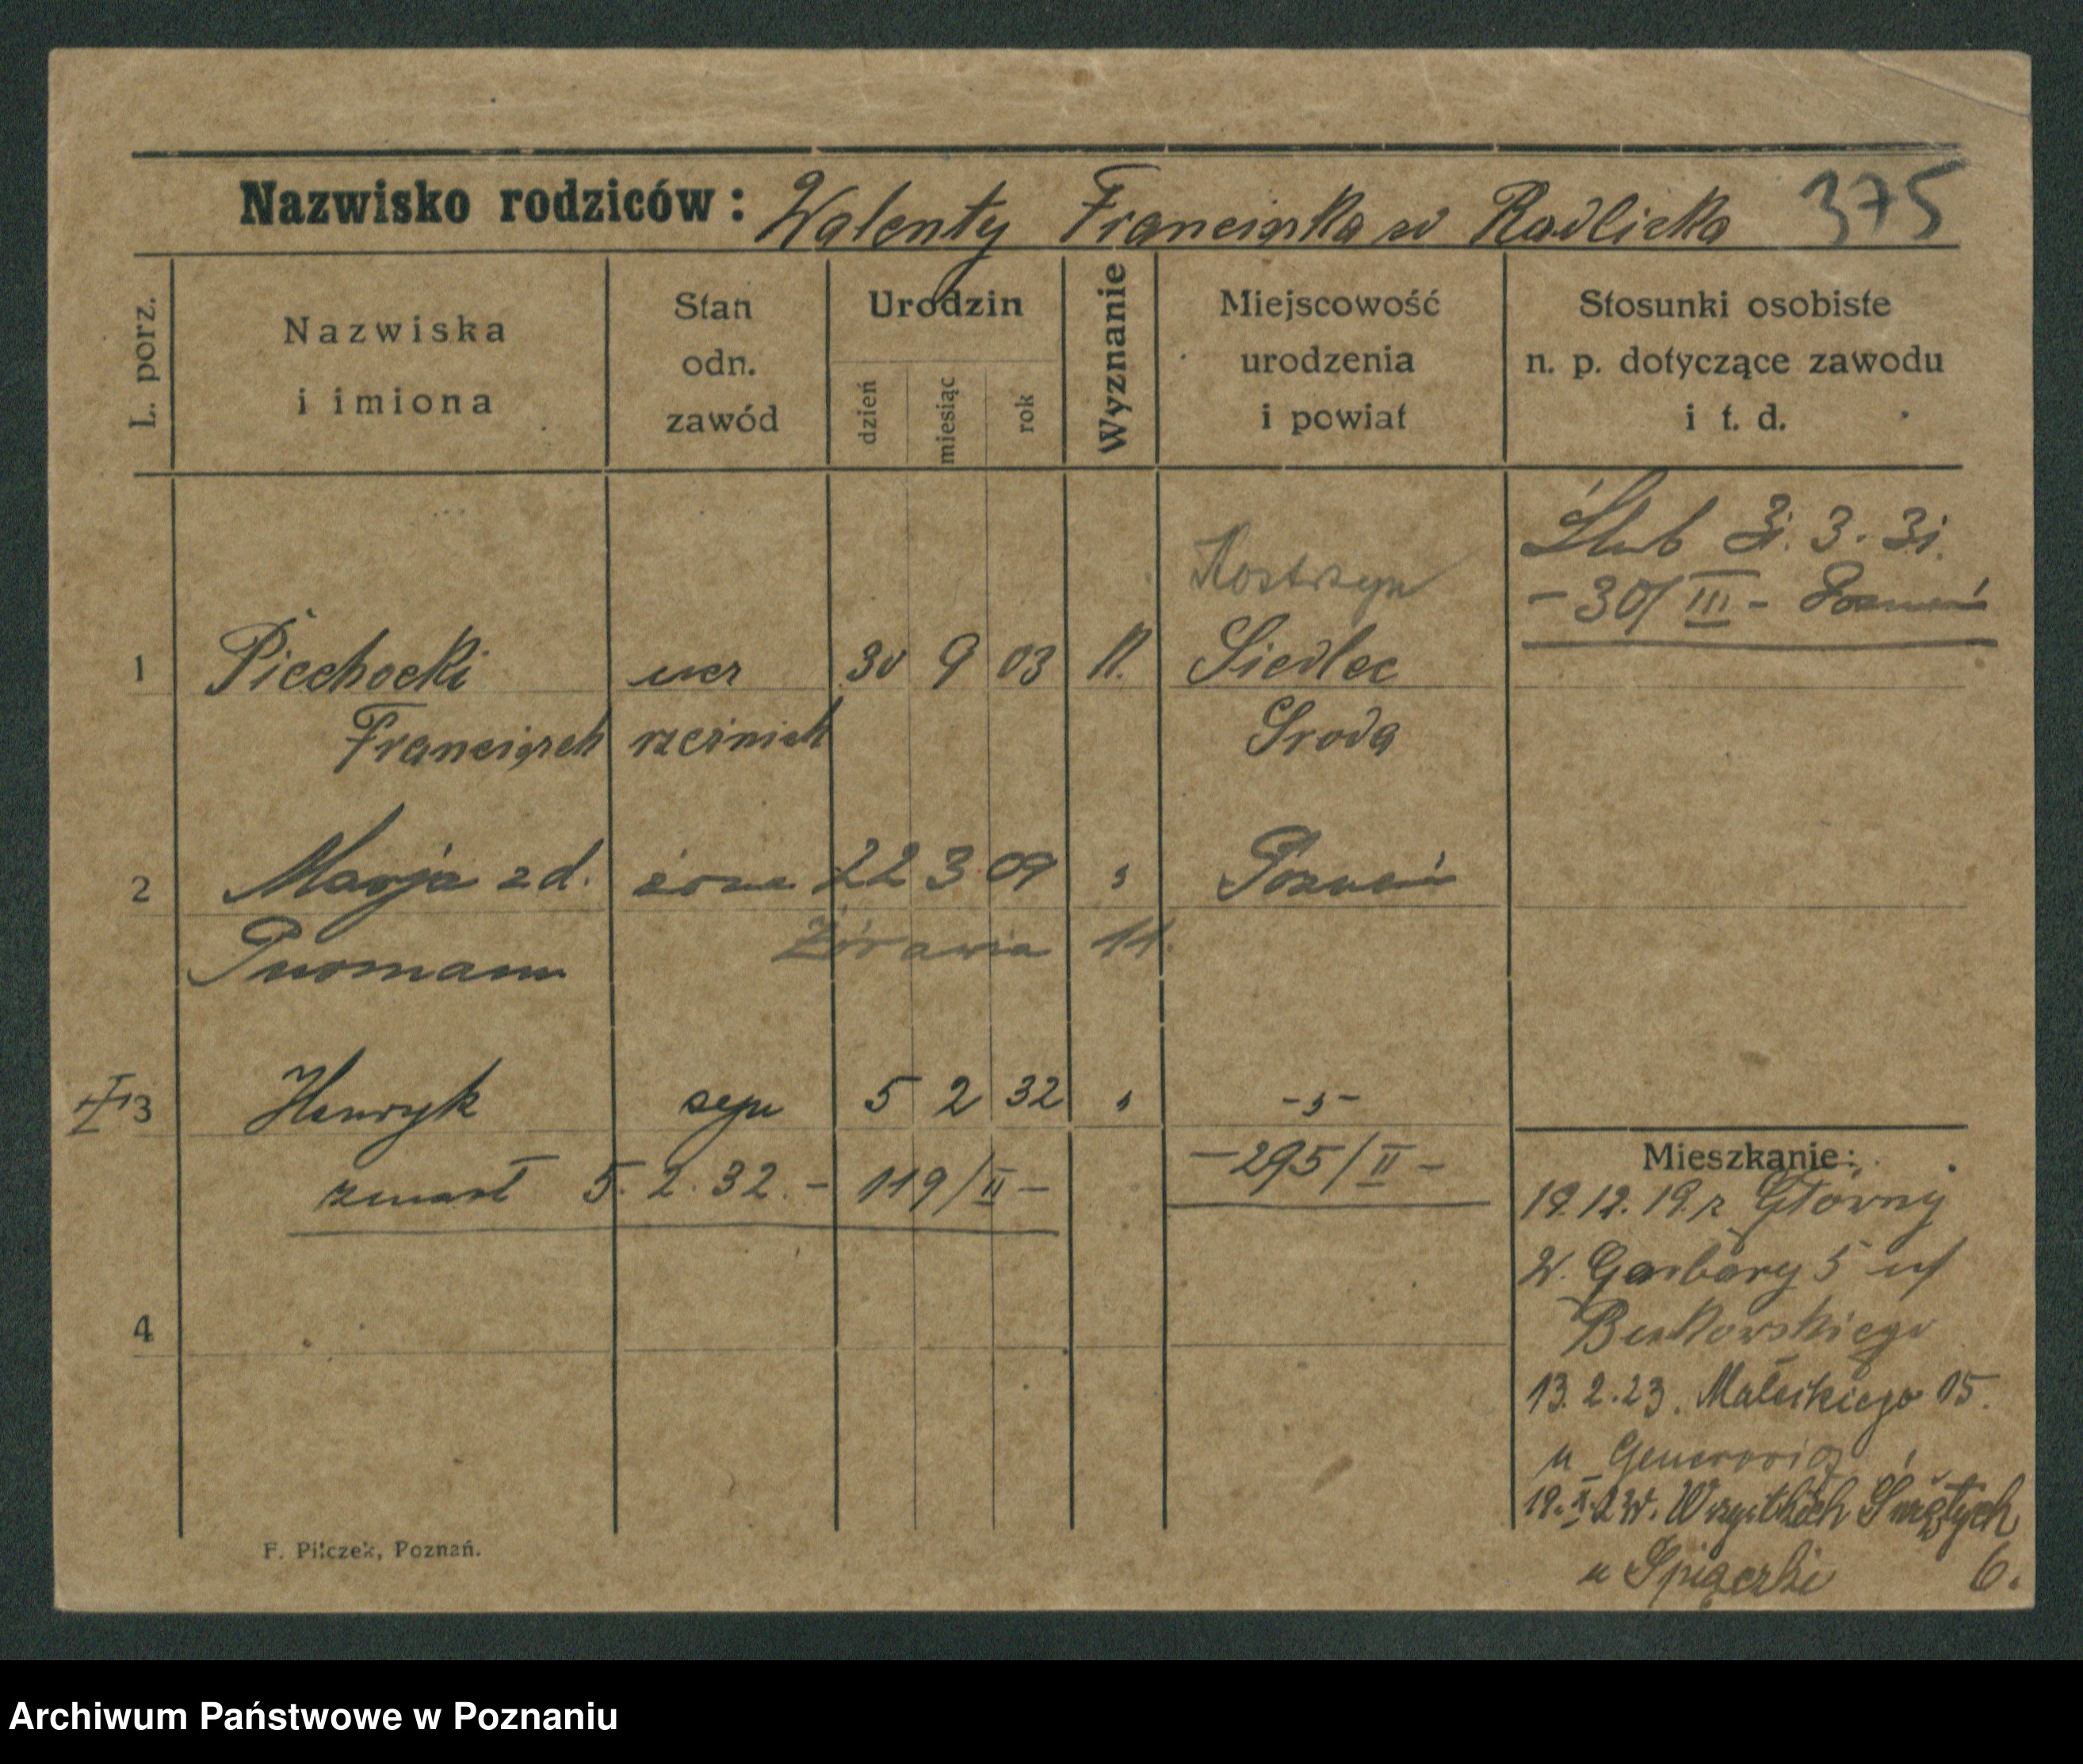 Nazwisko rodziców: Walenty Franciszka w Radlicka 375
L. porz.
Nazwiska
i imiona
Stan
odn.
zawód
Urodzin
dzień
miesiąc
rok
Wyznanie
Miejscowość
urodzenia
i powiat
Stosunki osobiste
n. p. dotyczące zawodu
i t. d.
Ślub 31. 3. 31.
- 30/III - Poznań
Kostrzyn
1 Piechocki ucz 30 9 03 K. Siedlec
Franciszek rzeźnicki Środa
2 Marja z d. żona 22 3 09 " Poznań
Żórawia 11.
3 Henryk syn 5 2 32 " - " -
zmarł 5. 2. 32. - 119/II - - 295/II -
4
Mieszkanie:
19. 12. 19. z Główny
W. Garbary 5 u/
13. 2. 23. Małeckiego 15.
u
Wszystkich Świętych
u Spiączki 6.
F. Pilczek, Poznań.
Archiwum Państwowe w Poznaniu